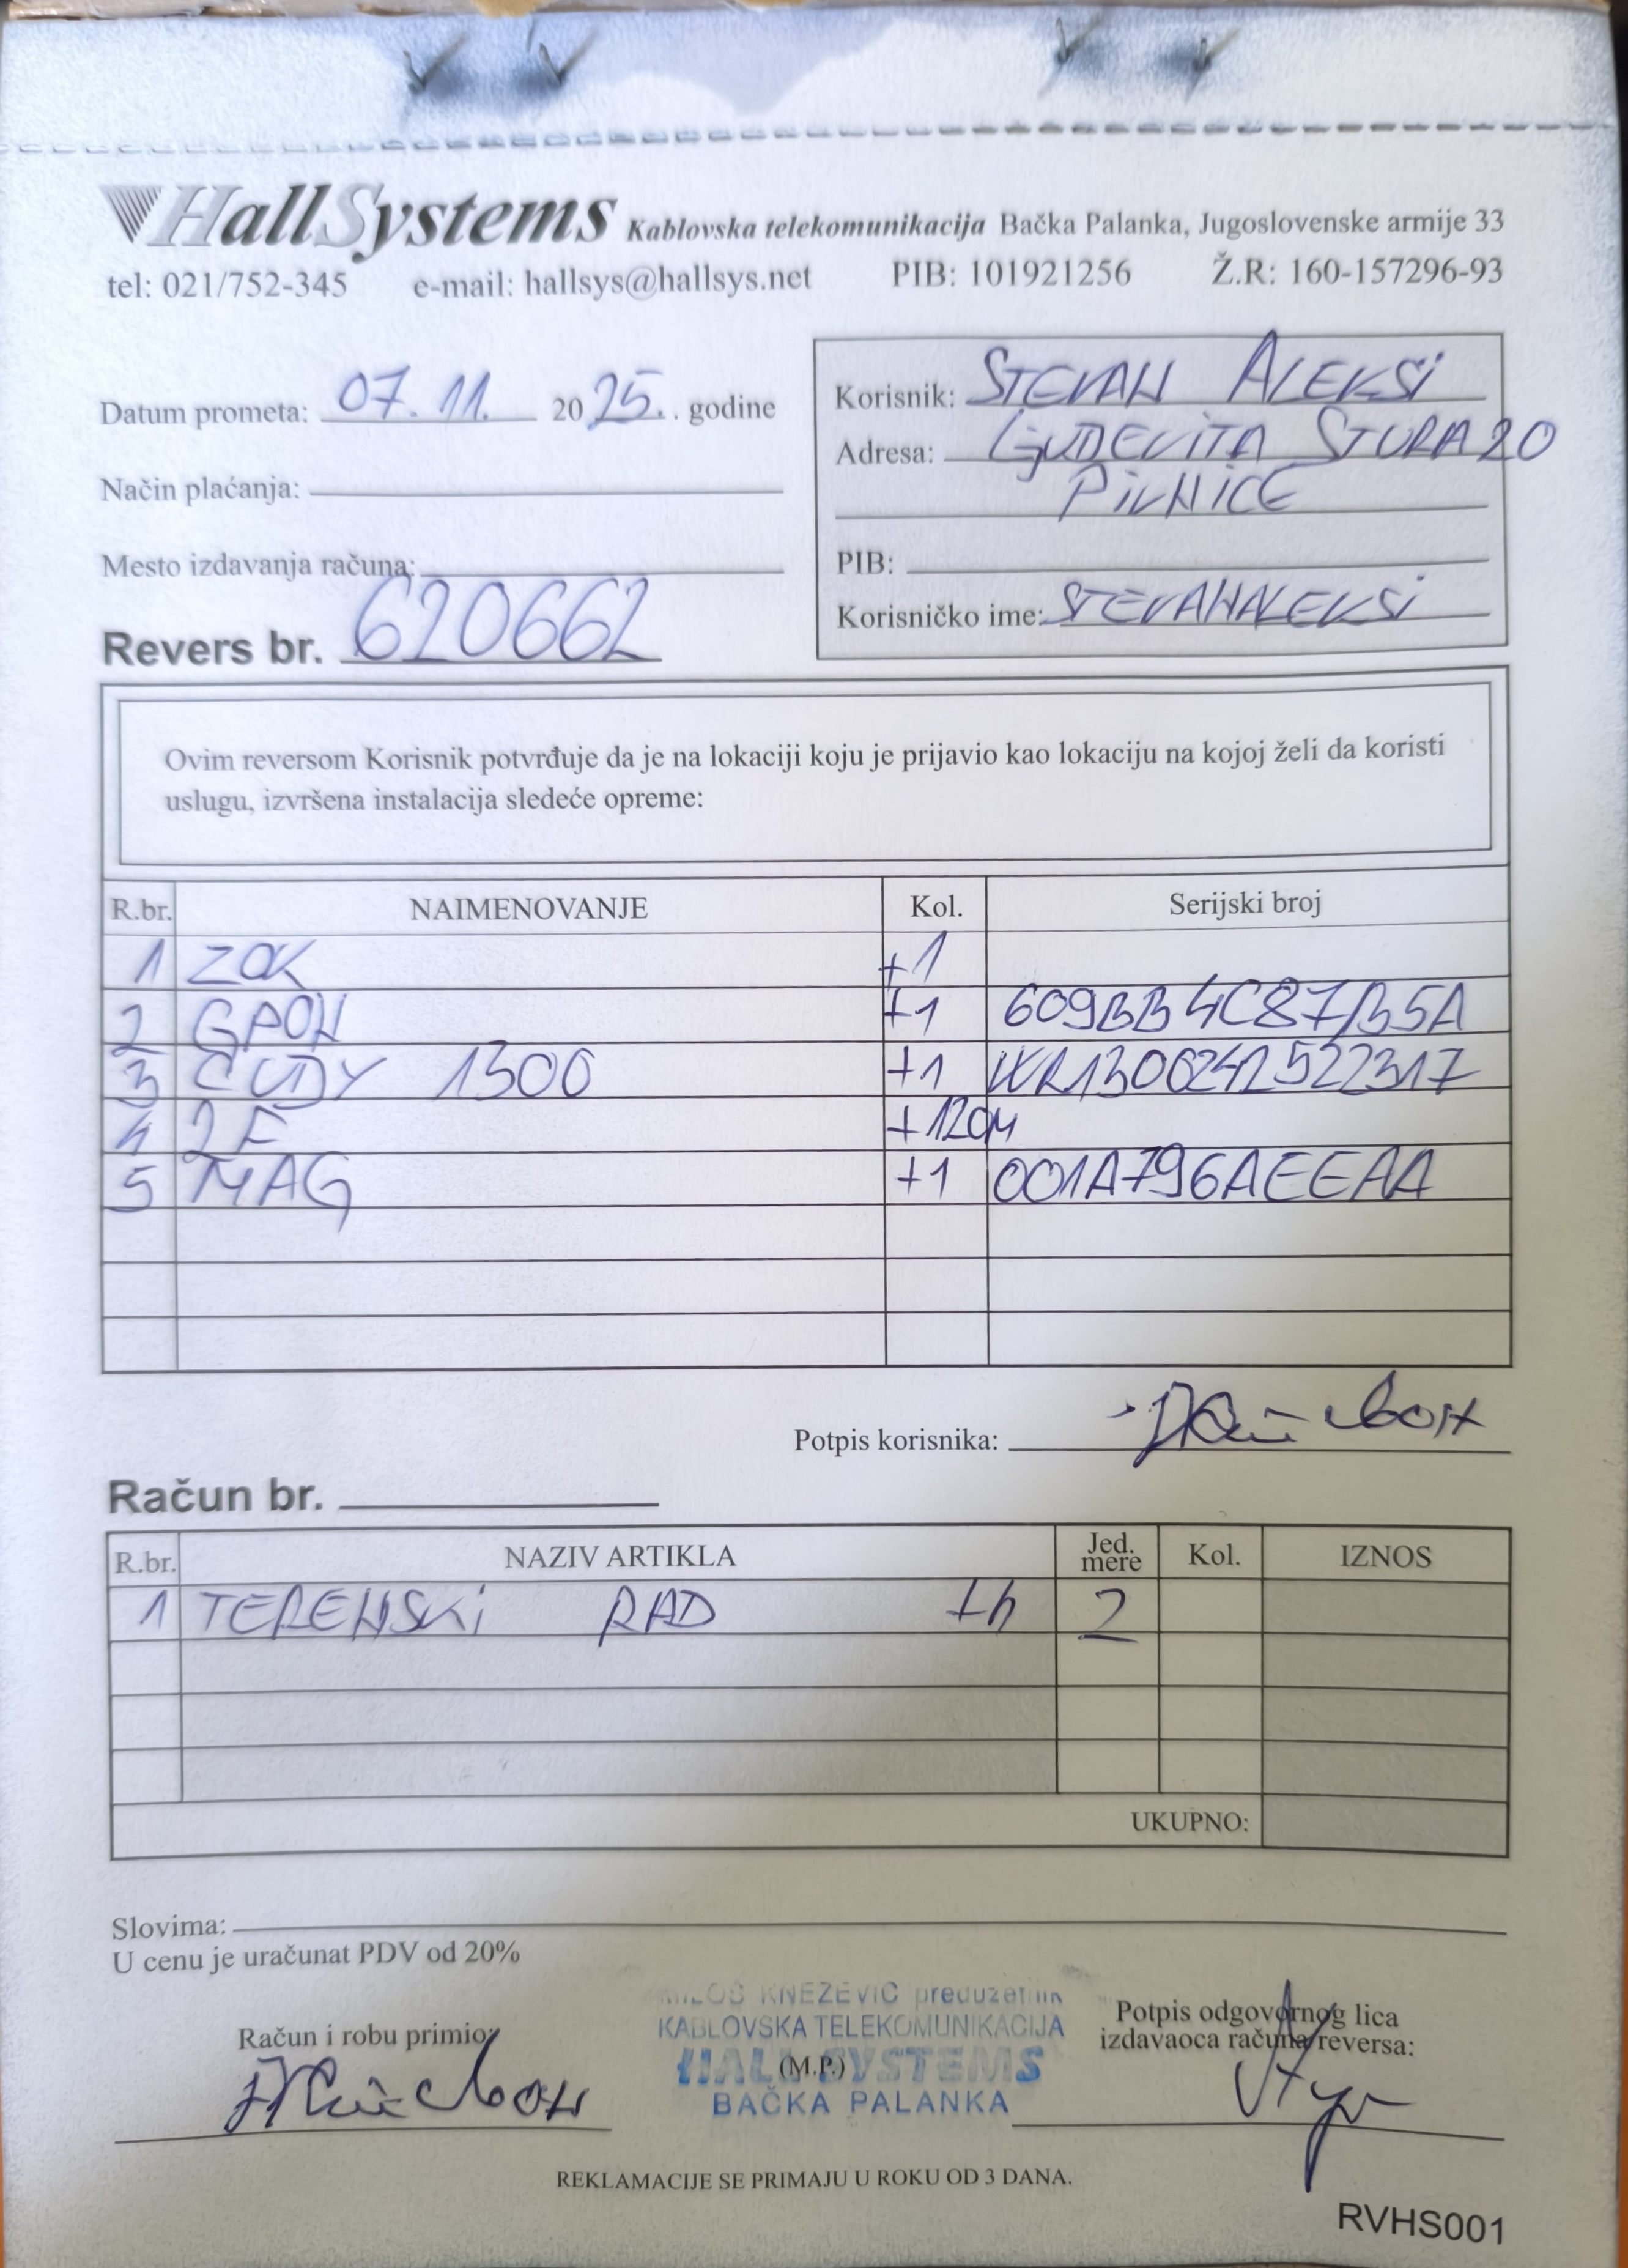 HallSystems Kablovska telekomunikacija Bačka Palanka, Jugoslovenske armije 33
tel: 021/752-345 e-mail: hallsys@hallsys.net PIB: 101921256 Ž.R: 160-157296-93
Datum prometa: 07. 11. 2025. . godine
Način plaćanja:
Mesto izdavanja računa:
Revers br. 620662
Korisnik: STEVAN ALEKSi
Adresa: LJUDEVITA ŠTURA 20
PiVNiCE
PIB:
Korisničko ime: STEVANALEKSi
Ovim reversom Korisnik potvrđuje da je na lokaciji koju je prijavio kao lokaciju na kojoj želi da koristi
uslugu, izvršena instalacija sledeće opreme:
R.br. NAIMENOVANJE Kol. Serijski broj
1 ZOK +1
2 GPON +1 609BB4C87B5A
3 CUDY 1300 +1 WR1306242522317
4 2F +120M
5 MAG +1 001A796AEEAA
Potpis korisnika:
Račun br.
R.br. NAZIV ARTIKLA Jed. mere Kol. IZNOS
1 TERENSKi RAD +h 2
UKUPNO:
Slovima:
U cenu je uračunat PDV od 20%
Račun i robu primio:
MILOŠ KNEŽEVIĆ preduzetnik
KABLOVSKA TELEKOMUNIKACIJA
HALL SYSTEMS
(M.P.)
BAČKA PALANKA
Potpis odgovornog lica
izdavaoca računa/reversa:
REKLAMACIJE SE PRIMAJU U ROKU OD 3 DANA.
RVHS001